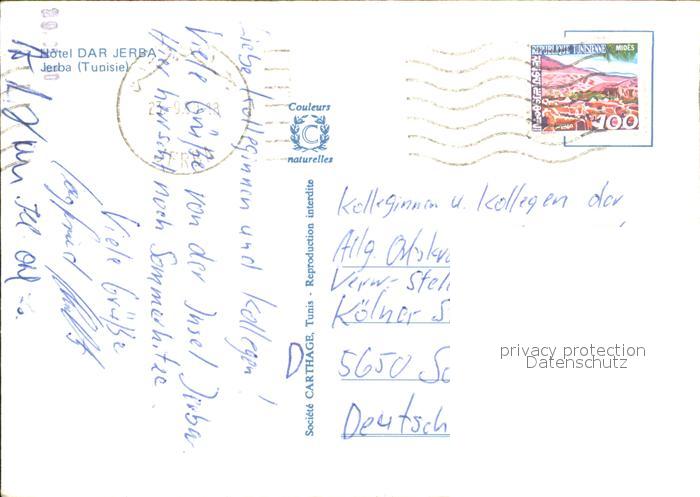 Hôtel DAR JERBA
Jerba (Tunisie)
Liebe Kolleginnen und Kollegen!
Viele Grüße von der Insel Jerba.
Hier herrscht noch Sommerhitze.
Viele Grüße
Couleurs
C
naturelles
Société CARTHAGE, Tunis - Reproduction interdite
D
REPUBLIQUE TUNISIENNE
MIDES
100
Kolleginnen u. Kollegen der
Allg. Ortskra
Verw.-Stell
Kölner S
5650 So
Deutsch
privacy protection
Datenschutz